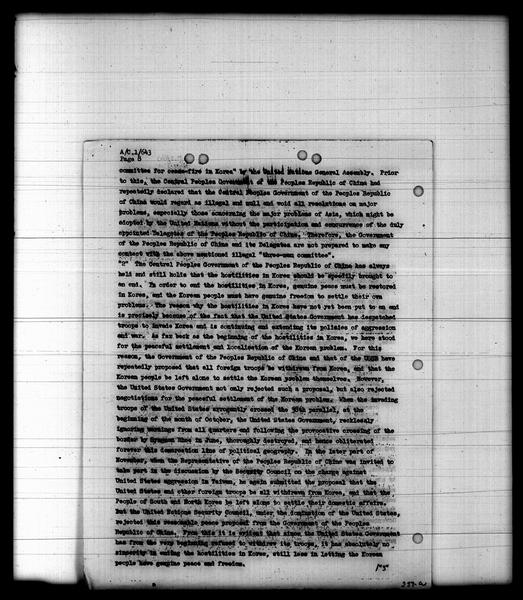 A/C.1/643
Page 8
committee for cease-fire in Korea" by the United Nations General Assembly. Prior
to this, the Central Peoples Government of the Peoples Republic of China had
repeatedly declared that the Central Peoples Government of the Peoples Republic
of China would regard as illegal and null and void all resolutions on major
problems, especially those concerning the major problems of Asia, which might be
adopted by the United Nations without the participation and concurrence of the duly
appointed Delegates of the Peoples Republic of China. Therefore, the Government
of the Peoples Republic of China and its Delegates are not prepared to make any
contact with the above mentioned illegal "three-man committee".
"2" The Central Peoples Government of the Peoples Republic of China has always
held and still holds that the hostilities in Korea should be speedily brought to
an end. In order to end the hostilities in Korea, genuine peace must be restored
in Korea, and the Korean people must have genuine freedom to settle their own
problems. The reason why the hostilities in Korea have not yet been put to an end
is precisely because of the fact that the United States Government has despatched
troops to invade Korea and is continuing and extending its policies of aggression
and war. As far back as the beginning of the hostilities in Korea, we have stood
for the peaceful settlement and localisation of the Korean problem. For this
reason, the Government of the Peoples Republic of China and that of the USSR have
repeatedly proposed that all foreign troops be withdrawn from Korea, and that the
Korean people be left alone to settle the Korean problem themselves. However,
the United States Government not only rejected such a proposal, but also rejected
negotiations for the peaceful settlement of the Korean problem. When the invading
troops of the United States arrogantly crossed the 38th parallel, at the
beginning of the month of October, the United States Government, recklessly
ignoring warnings from all quarters and following the provocative crossing of the
border by Syngman Rhee in June, thoroughly destroyed, and hence obliterated
forever this demarcation line of political geography. In the later part of
November, when the Representative of the Peoples Republic of China was invited to
take part in the discussion by the Security Council on the charge against
United States aggression in Taiwan, he again submitted the proposal that the
United States and other foreign troops be all withdrawn from Korea, and that the
People of South and North Korea be left alone to settle their domestic affairs.
But the United Nations Security Council, under the domination of the United States,
rejected this reasonable peace proposal from the Government of the Peoples
Republic of China. From this it is evident that since the United States Government
has from the very beginning refused to withdraw its troops, it has absolutely no
sincerity in ending the hostilities in Korea, still less in letting the Korean
people have genuine peace and freedom.
/"3"